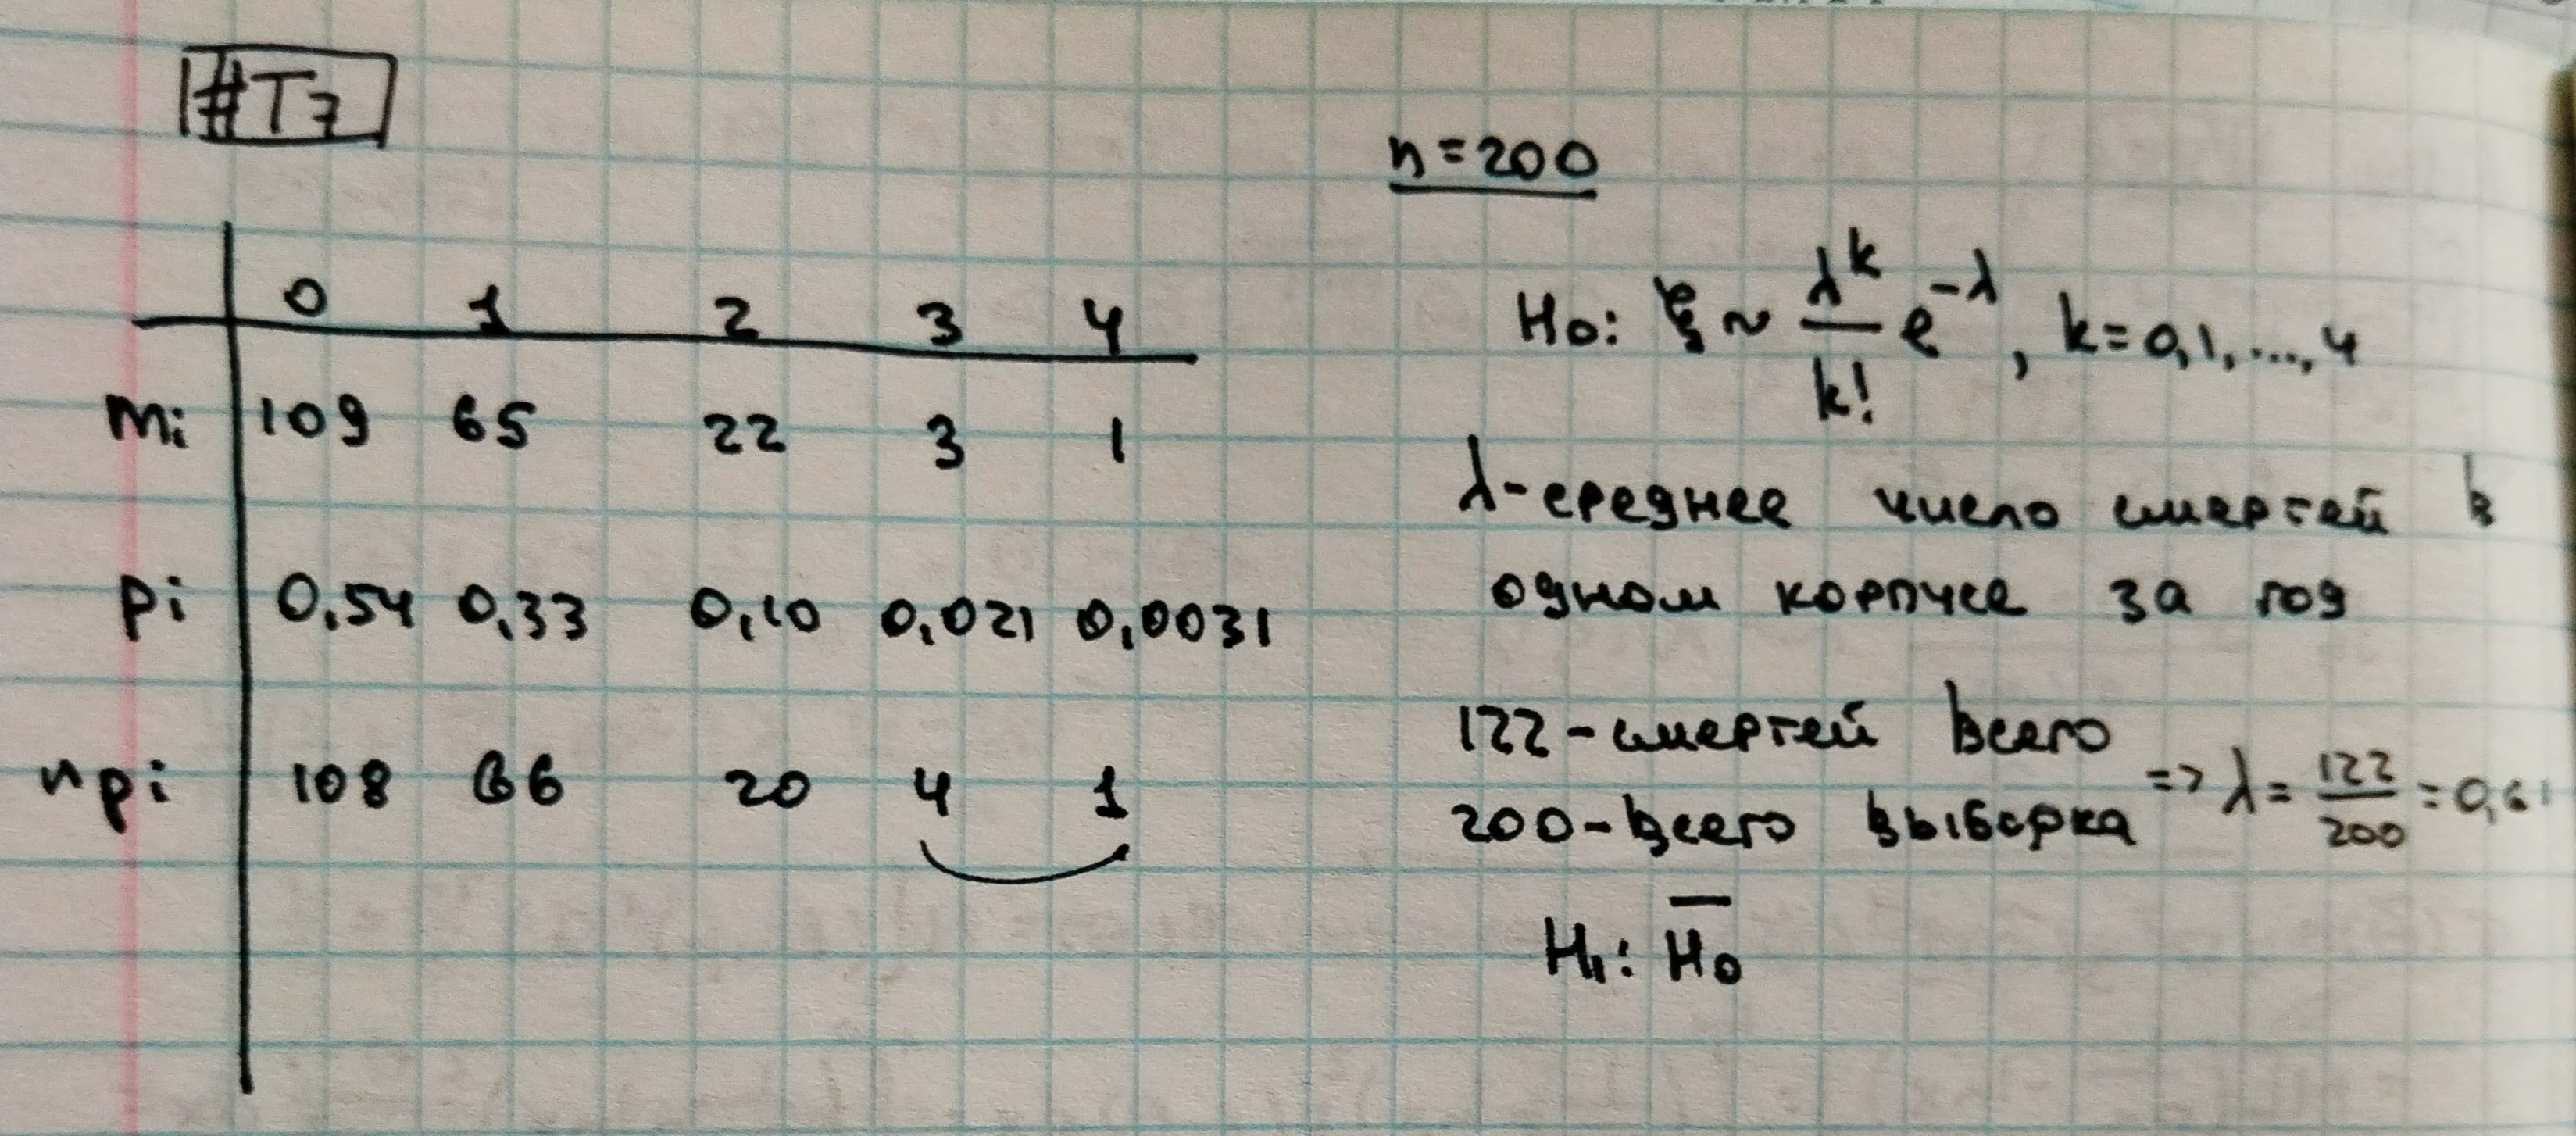 #T7
n=200
0 1 2 3 4
mi 109 65 22 3 1
pi 0,54 0,33 0,10 0,021 0,0031
npi 108 66 20 4 1
H0: ξ ~ λ^k/k! e^-λ, k=0,1,...,4
λ-среднее число смертей в
одном корпусе за год
122-смертей всего
200-всего выборка => λ = 122/200 = 0,61
H1: H̅0